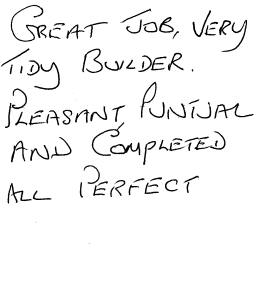 GREAT JOB, VERY
TIDY BUILDER.
PLEASANT, PUNTUAL
AND COMPLETED
ALL PERFECT